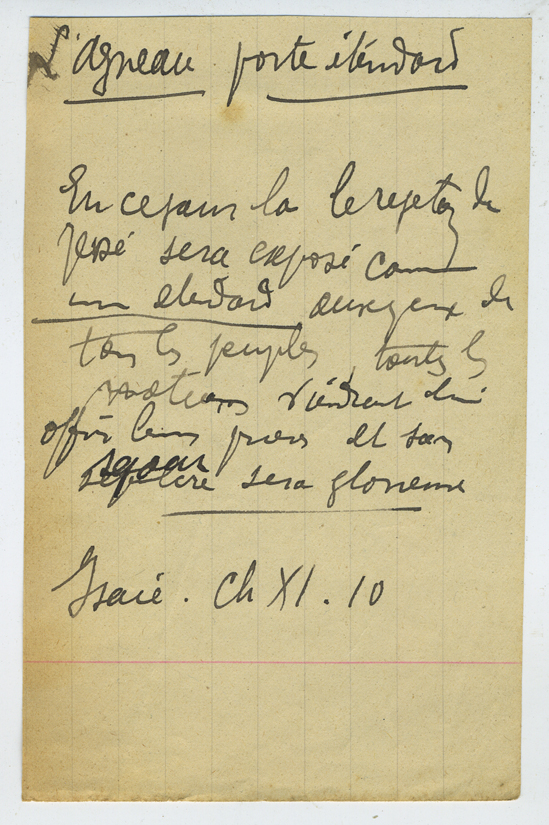 L'agneau porte étendard
En ce jour la le rejeton de
Jessé sera exposé comme
un étendard aux yeux de
tous les peuples, toutes les
nations viendront lui
offrir leurs prières et son
sepulcre sera glorieux
Isaïe. Ch XI. 10